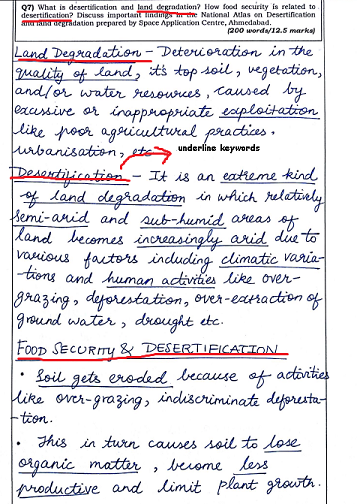 Q7) What is desertification and land degradation? How food security is related to
desertification? Discuss important findings in the National Atlas on Desertification
and land degradation prepared by Space Application Centre, Ahmedabad.
(200 words/12.5 marks)
Land Degradation - Deterioration in the
quality of land, it's top soil, vegetation,
and/or water resources, caused by
excessive or inappropriate exploitation
like poor agricultural practices.
urbanisation, etc
underline keywords
Desertification - It is an extreme kind
of land degradation in which relatively
semi-arid and sub-humid areas of
land becomes increasingly arid due to
various factors including climatic varia-
-tions and human activities like over-
grazing, deforestation, over-extraction of
ground water, drought etc.
FOOD SECURITY & DESERTIFICATION
• Soil gets eroded because of activities
like over-grazing, indiscriminate deforesta-
-tion.
• This in turn causes soil to lose
organic matter, become less
productive and limit plant growth.